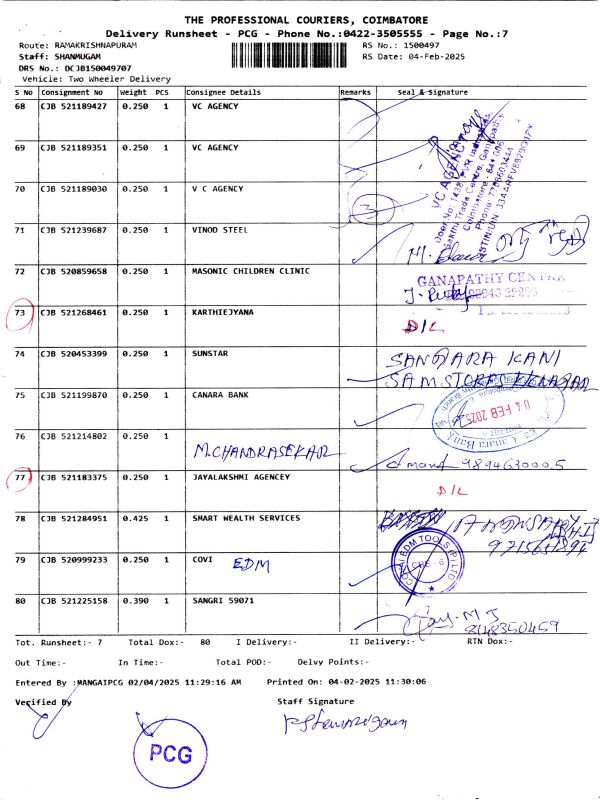 THE PROFESSIONAL COURIERS, COIMBATORE
Delivery Runsheet - PCG - Phone No.:0422-3505555 - Page No.:7
Route: RAMAKRISHNAPURAM RS No.: 1500497
Staff: SHANMUGAM RS Date: 04-Feb-2025
DRS No.: DCJB150049707
Vehicle: Two Wheeler Delivery
S No Consignment No Weight PCS Consignee Details Remarks Seal & Signature
68 CJB 521189427 0.250 1 VC AGENCY
69 CJB 521189351 0.250 1 VC AGENCY
VC AGENCY
70 CJB 521189030 0.250 1 V C AGENCY
3
71 CJB 521239687 0.250 1 VINOD STEEL
72 CJB 520859658 0.250 1 MASONIC CHILDREN CLINIC
GANAPATHY CENTRE
73 CJB 521268461 0.250 1 KARTHIEJYANA
D/L
74 CJB 520453399 0.250 1 SUNSTAR
SANGARA KANI
SAM STORES
75 CJB 521199870 0.250 1 CANARA BANK
04 FEB 2025
Canara Bank
76 CJB 521214802 0.250 1 M.CHANDRASEKAR
9894630005
77 CJB 521183375 0.250 1 JAYALAKSHMI AGENCEY
D/L
78 CJB 521284951 0.425 1 SMART WEALTH SERVICES
79 CJB 520999233 0.250 1 COVI EDM
EDM TOOLS (P) LTD
CBE - 6
80 CJB 521225158 0.390 1 SANGRI 59071
9148350459
Tot. Runsheet:- 7 Total Dox:- 80 I Delivery:- II Delivery:- RTN Dox:-
Out Time:- In Time:- Total POD:- Delvy Points:-
Entered By :MANGAIPCG 02/04/2025 11:29:16 AM Printed On: 04-02-2025 11:30:06
Verified By Staff Signature
PCG